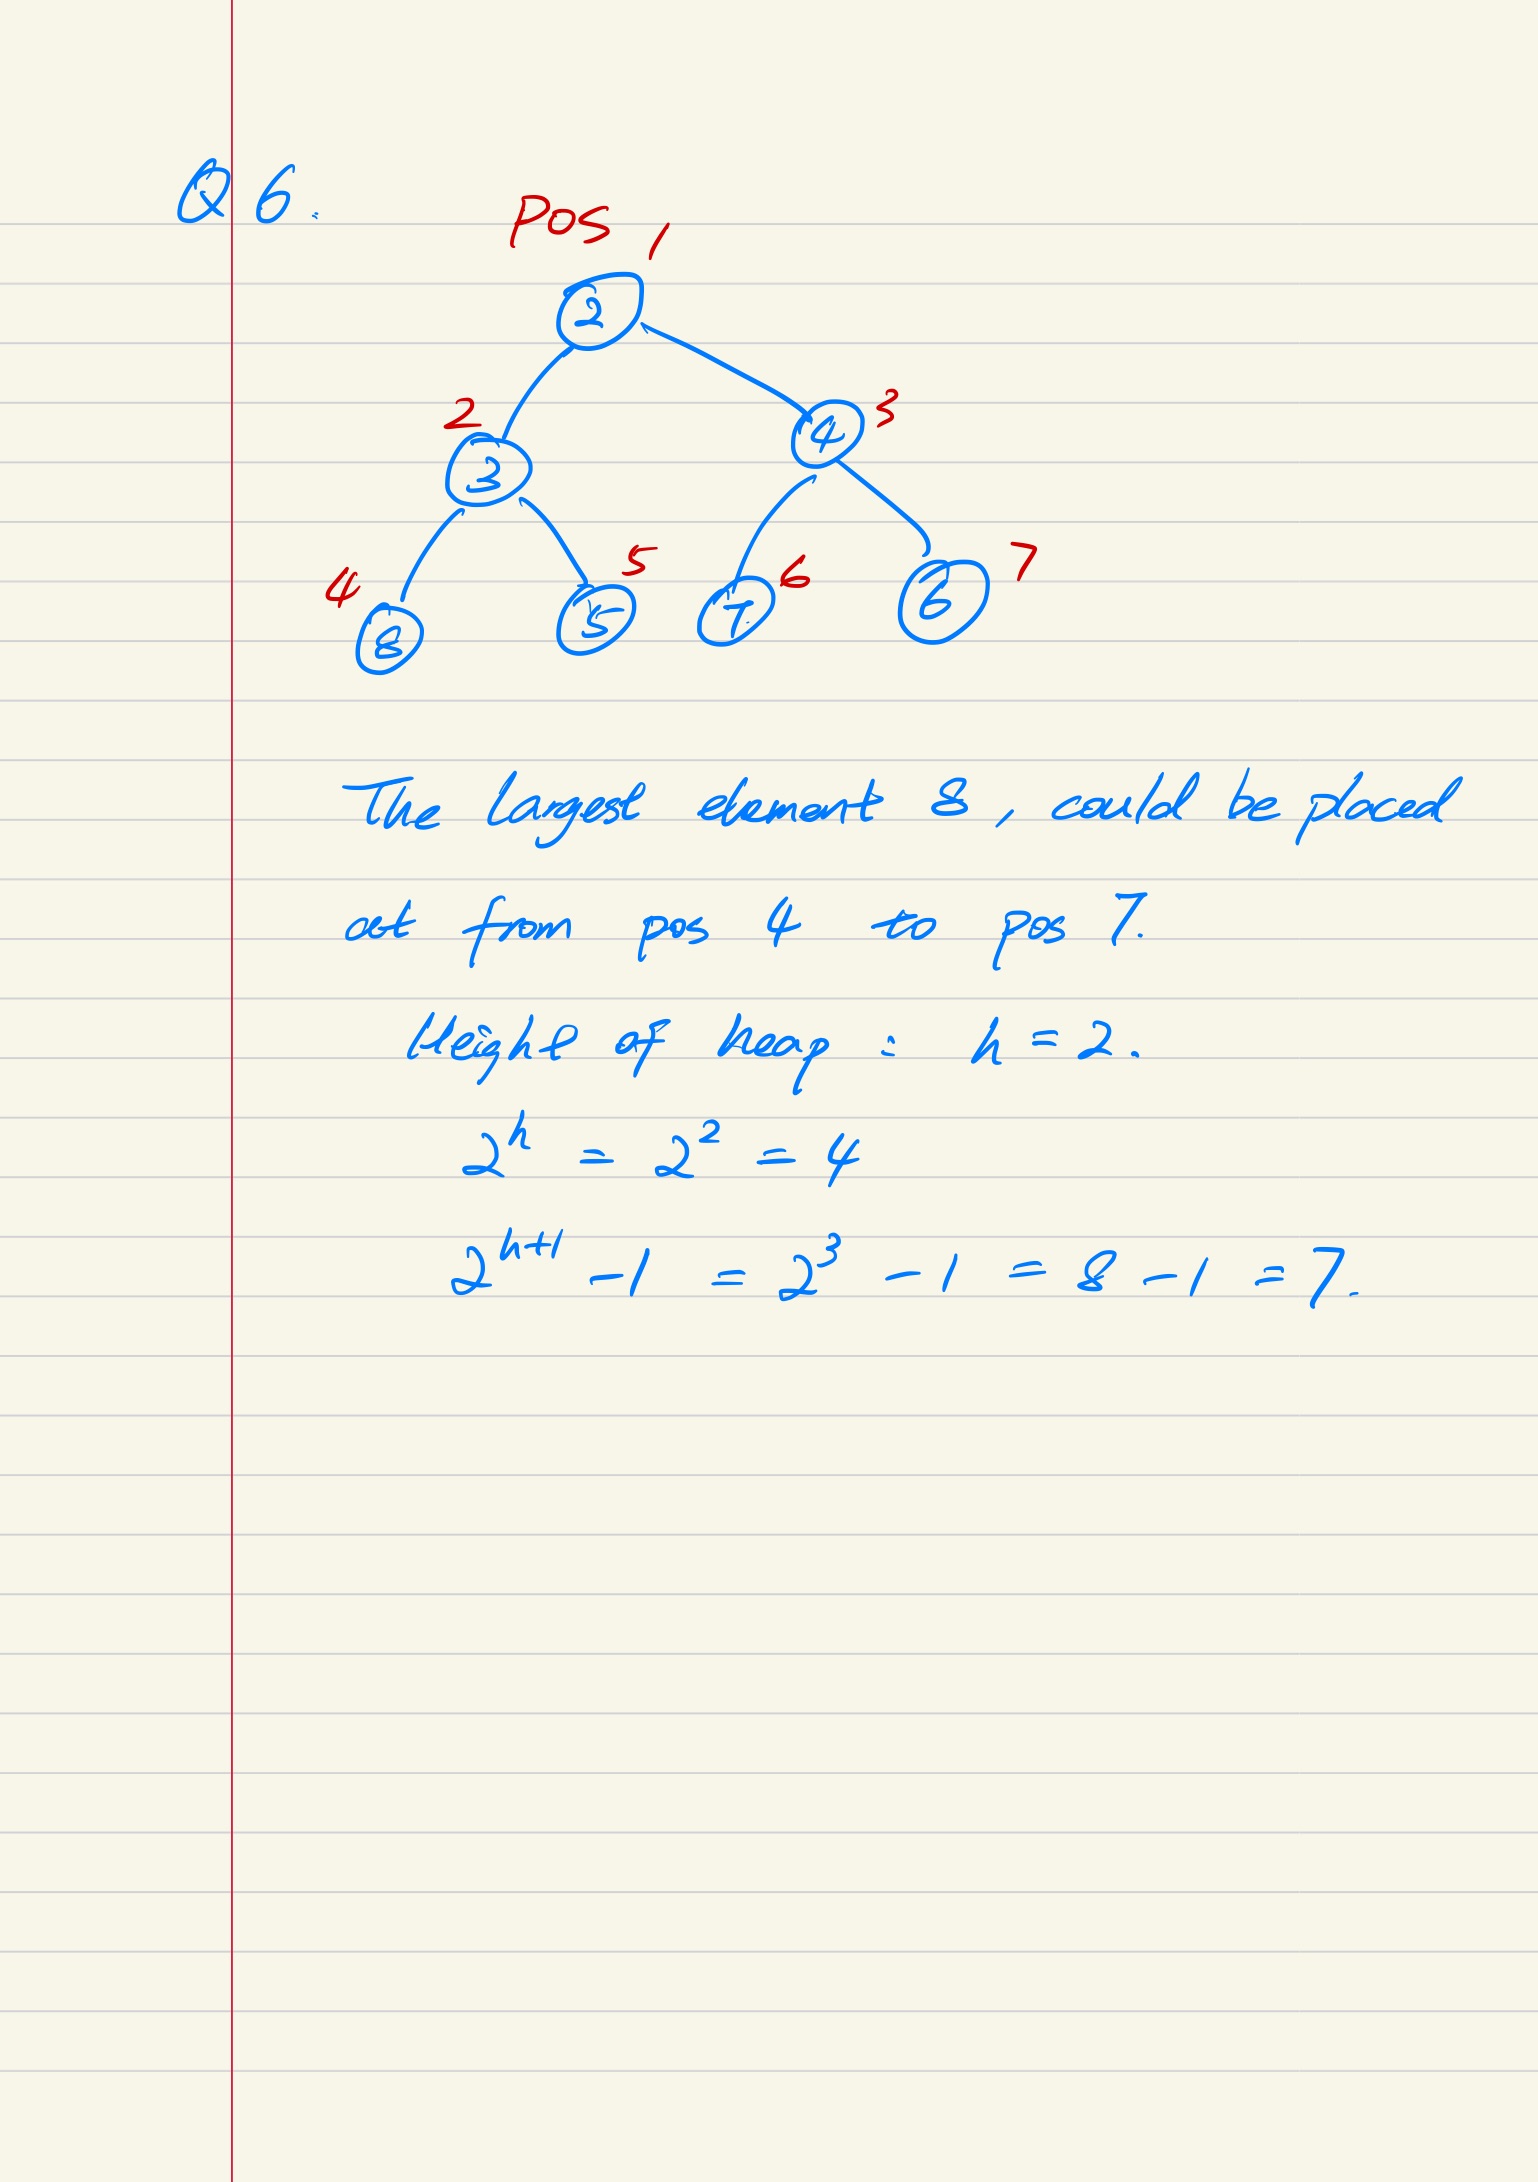 Q6.
Pos 1
2
2
3
4
3
4
8
5
5
6
7
7
6
The largest element 8, could be placed
at from pos 4 to pos 7.
Height of heap : h = 2.
2^h = 2^2 = 4
2^{h+1} - 1 = 2^3 - 1 = 8 - 1 = 7.